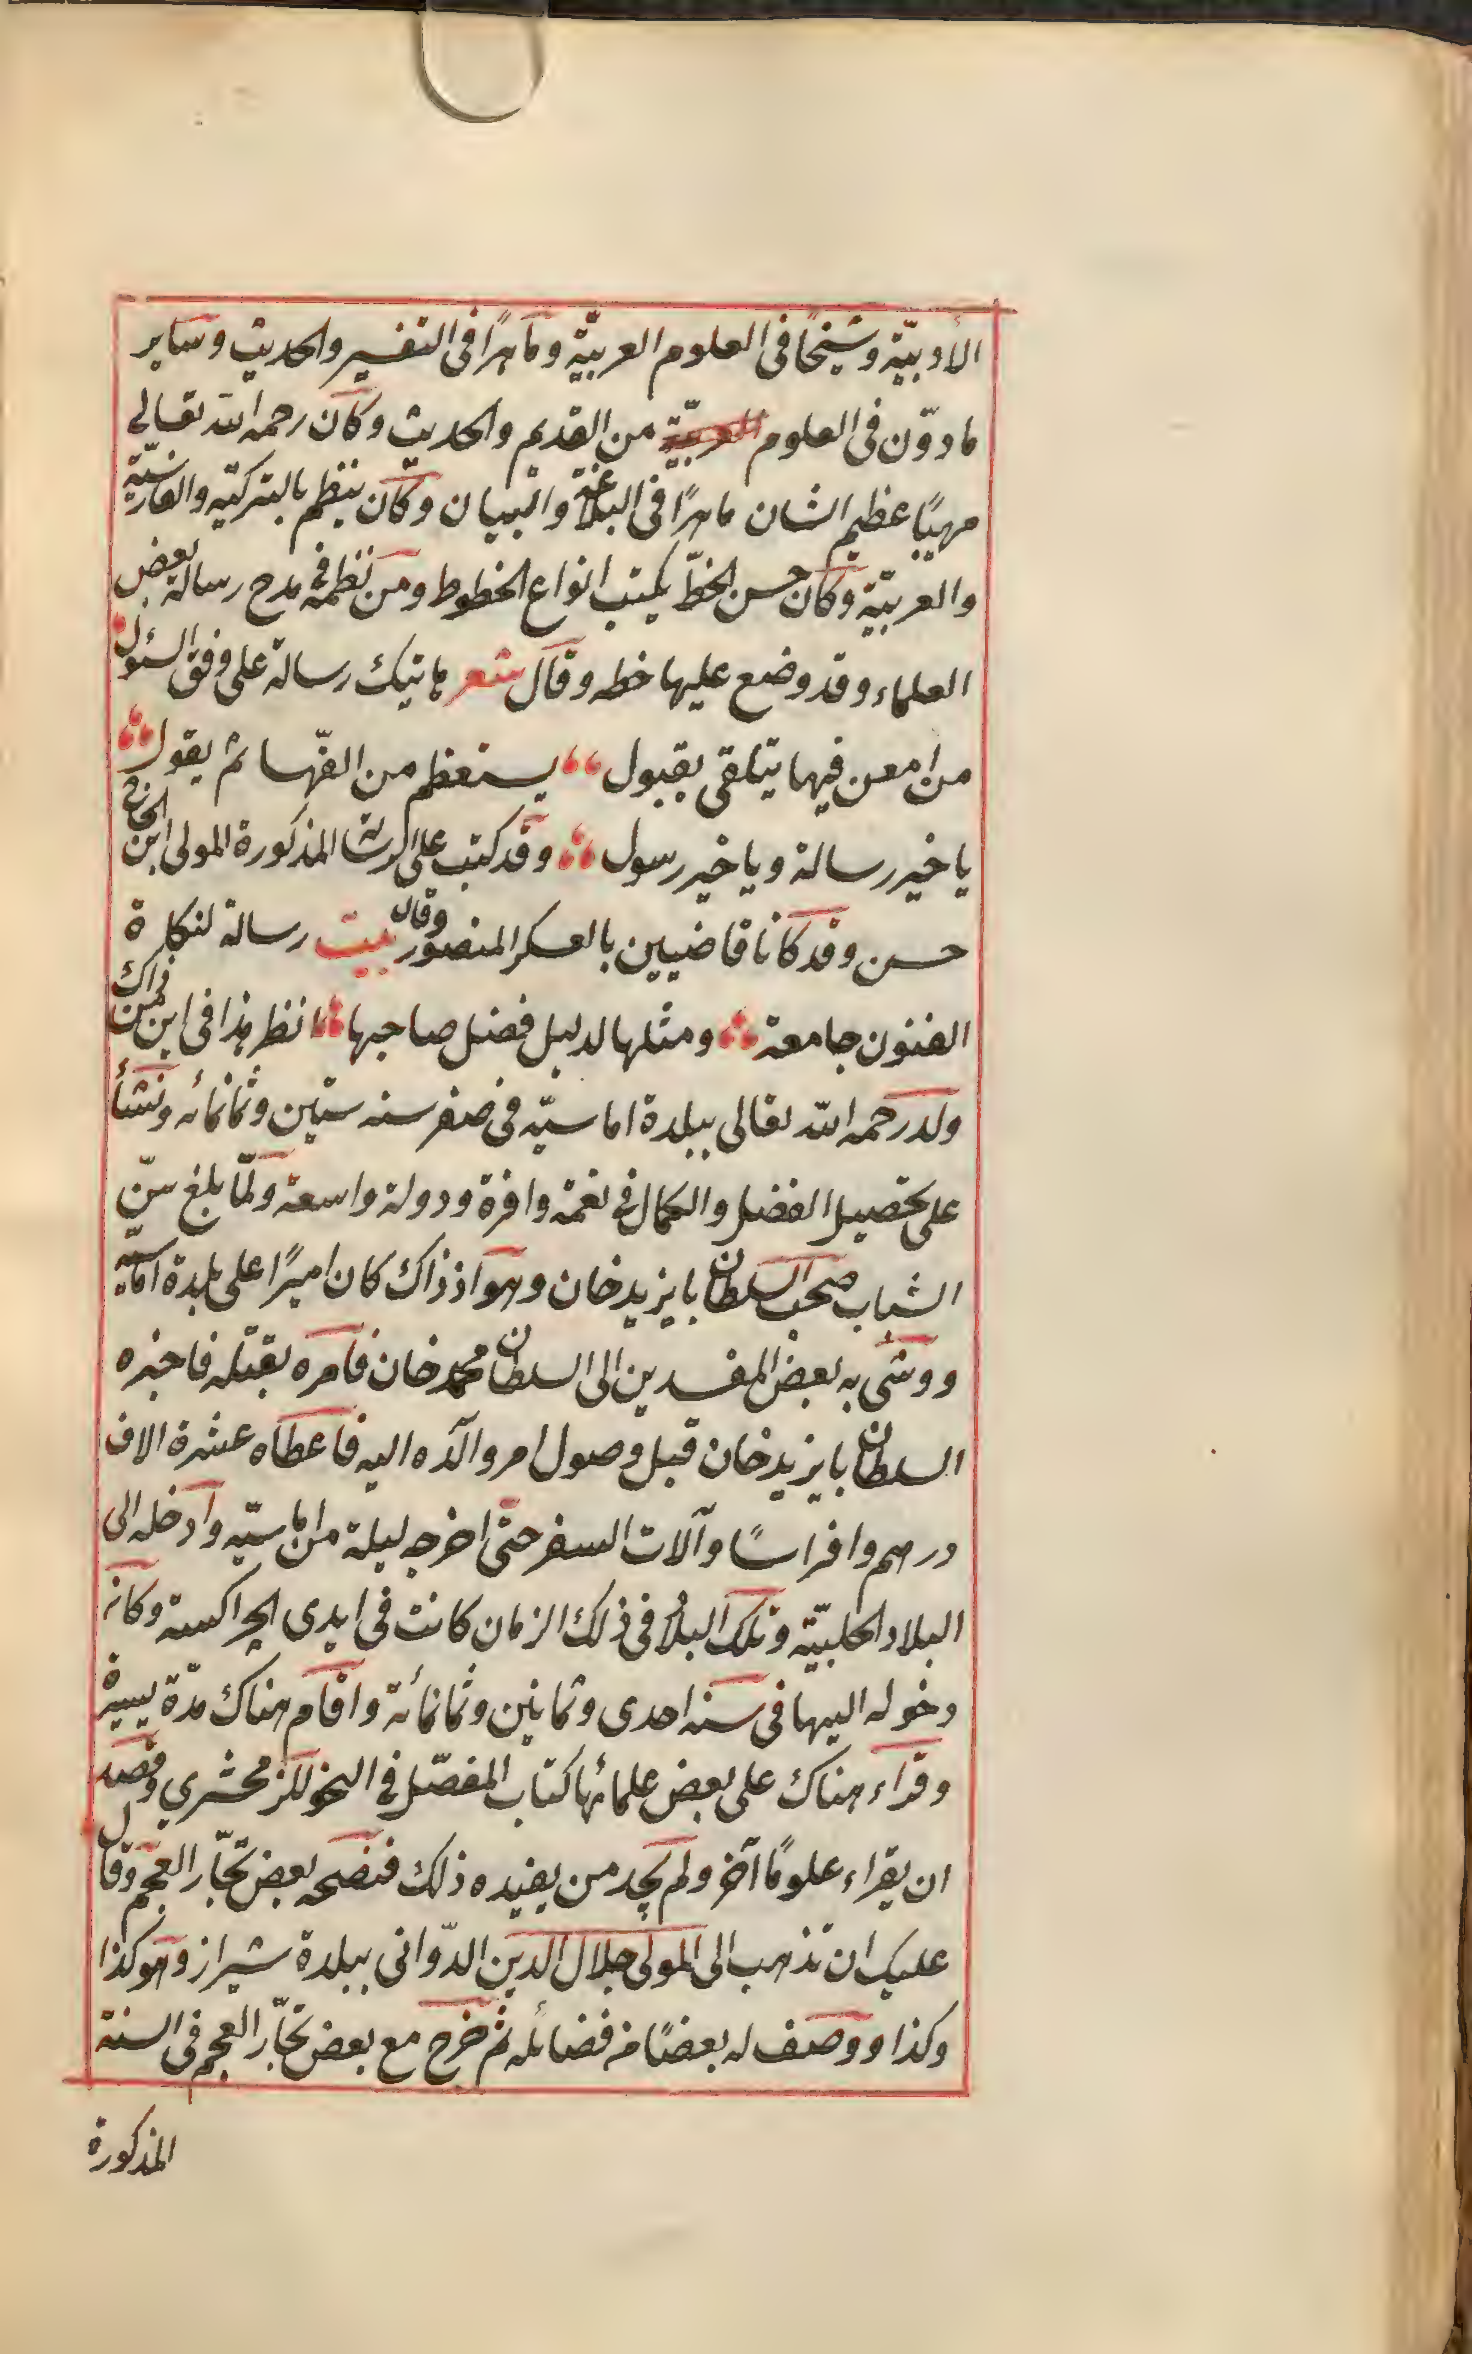 الأدبيّة وشيخًا فى العلوم العربيّة وماهرًا فى التفسير والحديث وساير
مادوّن فى العلوم العربيّة من القديم والحديث وكان رحمه الله تعالى
مهيبًا عظيم الشان ماهرًا فى البلاغة والبيان وكان ينظم بالتركيّة والفارسيّة
والعربيّة وكان حسن الخطّ يكتب انواع الخطوط ومن نظمه فى مدح رسالة بعض
العلماء وقد وضع عليها خطه وقال شعر هاتيك رسالة على وفق السئول
من امعن فيها يتلقى بقبول يستعظم من الفّها ثم يقول
يا خير رسالة ويا خير رسول وقد كتب على الرسالة المذكورة المولى ابن الحاج
حسن وقد كانا قاضيين بالعسكر المنصور وقال بيت رسالة لنكارة
الفنون جامعة ومثلها لدليل فضل صاحبها انظر هذا فى اين فمن ذاك
ولد رحمه الله تعالى ببلدة اماسيّه فى صفر سنه ستّين وثمانمائه ونشأ
على تحصيل الفضل والكمال فى نعمة وافرة ودولة واسعة ولمّا بلغ سنّ
الشباب صحب السلطان بايزيد خان وهو اذ ذاك كان اميرًا على بلدة اماسيّه
ووشى به بعض المفسدين الى السلطان محمد خان فامره بقتله فاخبره
السلطان بايزيد خان قبل وصول امر والده اليه فاعطاه عشرة الاف
درهم وافراسًا وآلات السفر حتى اخرجه ليلة من اماسيّه وادخله الى
البلاد الحلبيّة وتلك البلاد فى ذلك الزمان كانت فى ايدى الچراكسة وكان
دخوله اليها فى سنه احدى وثمانين وثمانمائة واقام هناك مدّة يسيرة
وقراء هناك على بعض علمائها كتاب المفصّل فى النحو للزمخشري وقصد
ان يقراء علومًا آخر ولم يجد من يفيده ذلك فنصحه بعض تجّار العجم وقال
عليك ان تذهب الى المولى جلال الدين الدّوانى ببلدة شيراز وهو كذا
وكذا ووصف له بعضًا من فضائله ثم خرج مع بعض تجّار العجم فى السنة
المذكورة